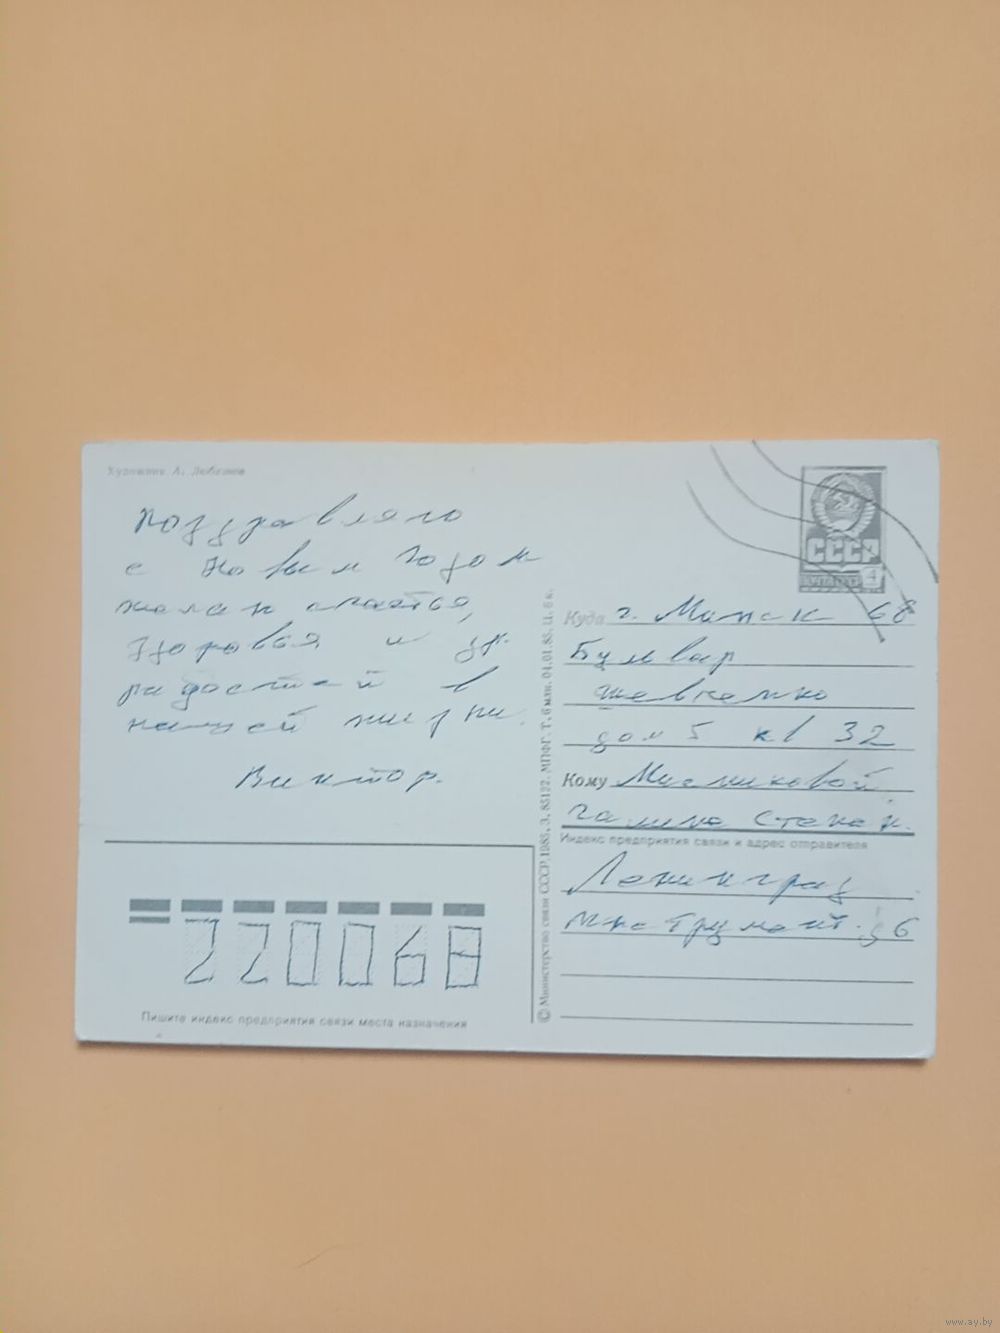 Художник А. Любезнов
поздравляю
с Новым годом
желаем счастья,
здоровья и др.
радостей в
нашей жизни.
Виктор.
220068
Пишите индекс предприятия связи места назначения
© Министерство связи СССР, 1985. З. 85122. МПФГ. Т. 6 млн. 04.01.85. Ц. 6 к.
СССР
ПОЧТА 4
Куда г. Минск 68
Бульвар
Шевченко
дом 5 кв 32
Кому Мисниковой
Галине Степан.
Индекс предприятия связи и адрес отправителя
Ленинград
Инструмент. 6
www.ay.by